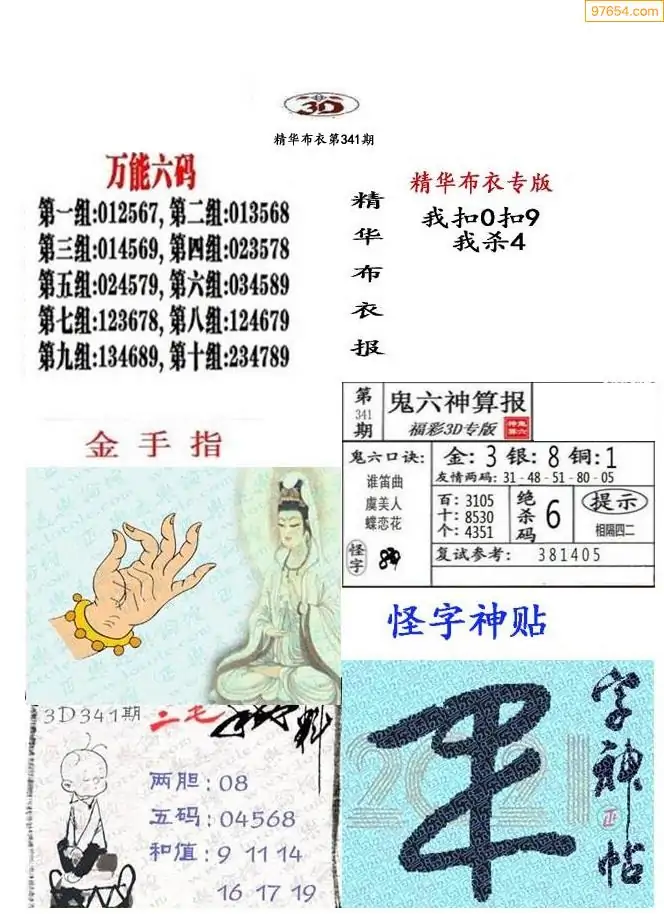 97654.com
3D
精华布衣第341期
万能六码
第一组:012567, 第二组:013568
第三组:014569, 第四组:023578
第五组:024579, 第六组:034589
第七组:123678, 第八组:124679
第九组:134689, 第十组:234789
精华布衣报
精华布衣专版
我扣0扣9
我杀4
金手指
第341期
鬼六神算报
福彩3D专版
鬼六口诀:
谁笛曲
虞美人
蝶恋花
怪字
金:3 银:8 铜:1
友情两码:31-48-51-80-05
百:3105
十:8530
个:4351
绝杀码 6
提示
相隔四二
复试参考: 381405
怪字神贴
3D341期
两胆:08
五码:04568
和值:9 11 14
16 17 19
2021
字神帖